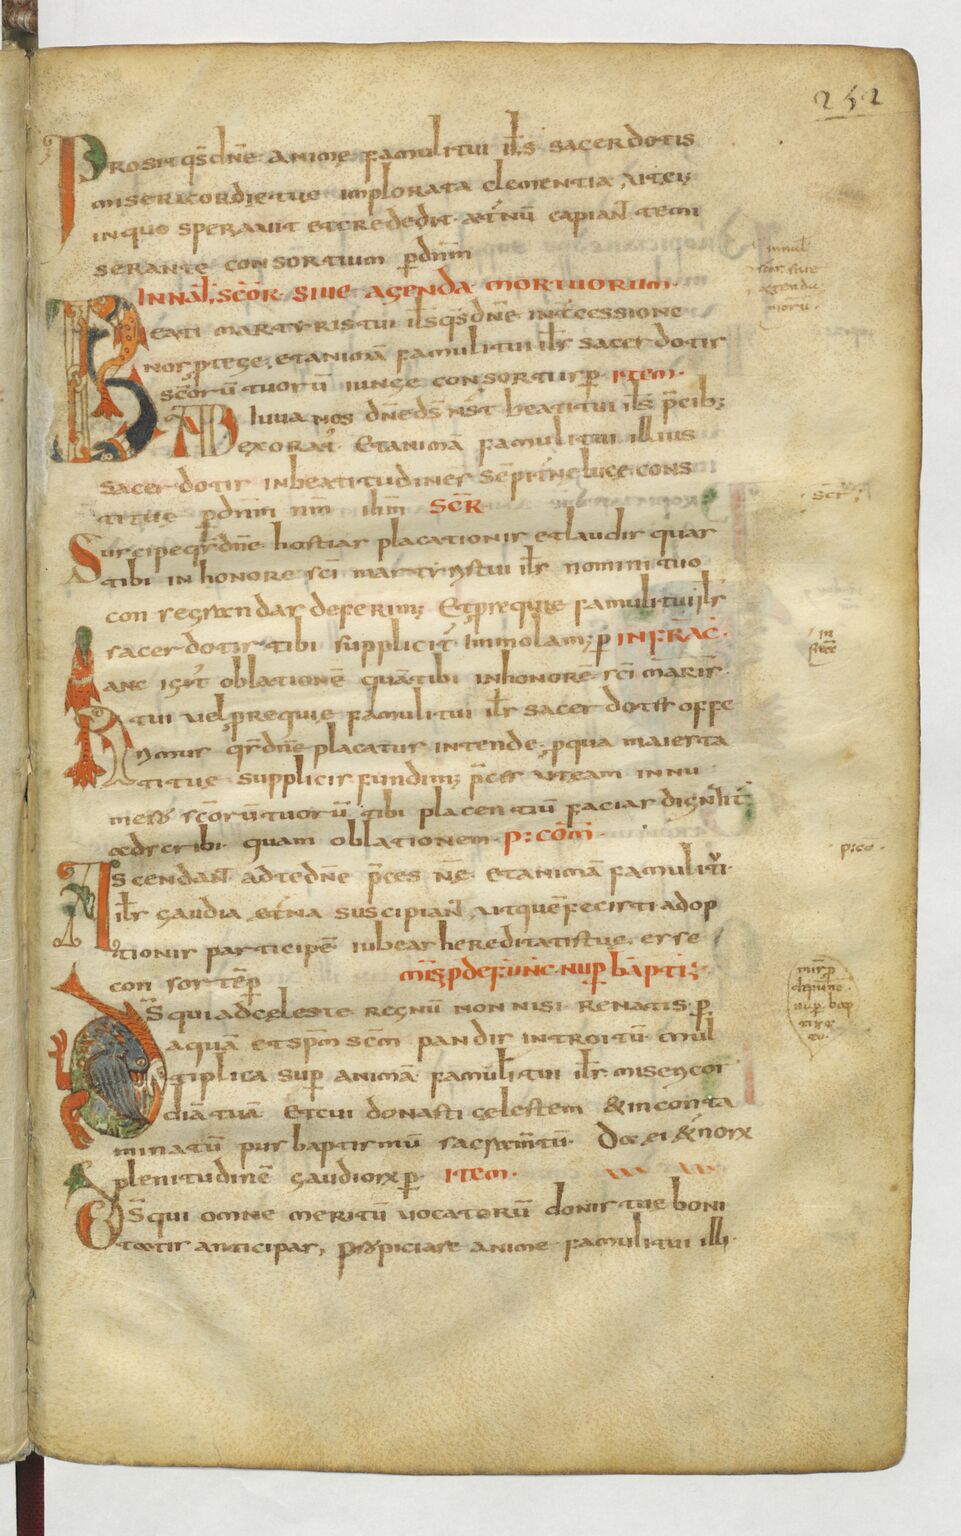 252
Prosit qs dne anime famuli tui ills sacerdotis
misericordie tue implorata clementia, ut eius
in quo speravit et credidit aeternū capiat te mi
serante consortium p dnm
IN NAL SCOR SIVE AGENDA MORTUORUM.
Beati martyris tui ills qs dne intercessione
nos ptege, et animā famuli tui ills sacerdotis
scorū tuorū iunge consortiis p ITEM.
Adiuva nos dne ds nst beati tui ills pcib;
exorat. Et animā famuli tui illius
sacerdotis in beatitudines sempitne luce cons
titue p dnm nrm ihm SCR
Suscipe qs dne hostias placationis et laudis quas
tibi in honore sci martyris tui ills nomini tuo
consecrandas deferim; Et p requie famuli tui ills
sacerdotis tibi supplicit immolam; p INFRAC.
Hanc igit oblationē quā tibi in honore sci martiris
tui vel p requie famuli tui ills sacerdotis offe
rimus qs dne placatus intende, p qua maiesta
ti tue supplicis fundim; pces ut eam in nu
mero scorū tuorū tibi placentiū facias dignt
adscribi quam oblationem. P: COM.
Ascendant ad te dne pces nre et animā famuli ti.
ills gaudia etna suscipiant, ut quē fecisti adop
tionis participē iubeas hereditatis tue esse
consortē p MIS P DEFUNC NUP BAPTIZ
Ds qui ad celeste regnū non nisi renatis p
aquā et spm scm pandis introitū. mul
tiplica sup animā famuli tui ills misericor
diā tuā et cui donasti celestem & incōnta
minatū pus baptismū sacramtū. Da ei &nor
plenitudinē gaudior p. ITEM.
Ds qui omne meritū vocatorū donis tue boni
tatis anticipas, propiciare anime famuli tui illi.
in nal
scor sive
agenda
moru.
scr
in
frac
p: co.
mis p
defunc
nup bap
tiza
to.